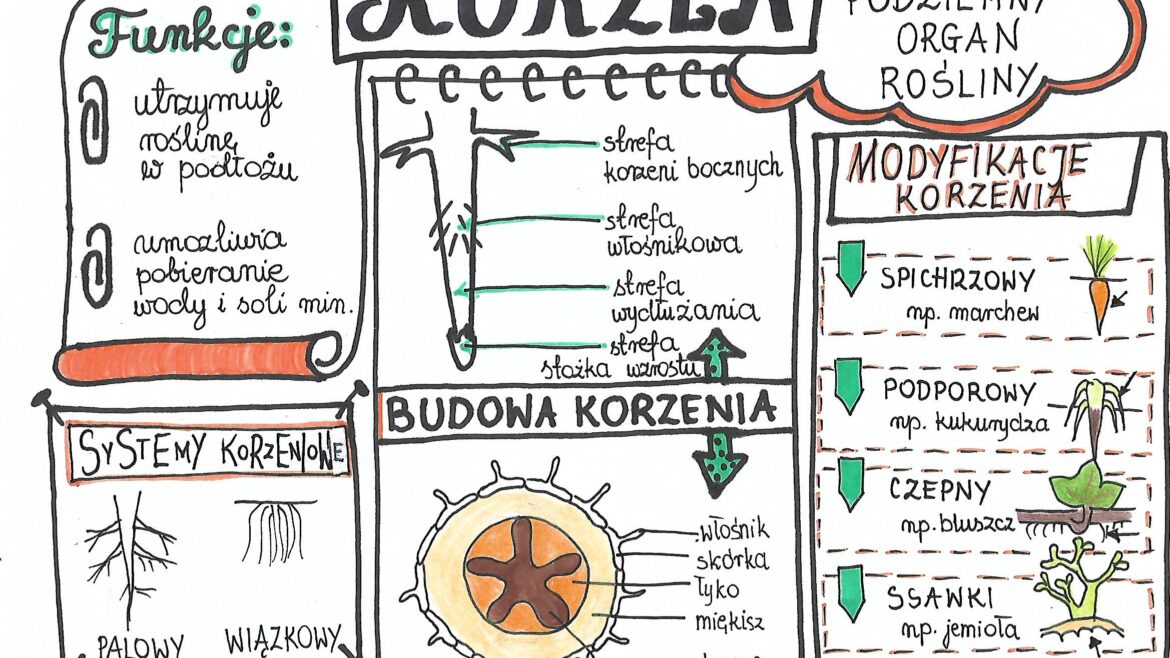 Funkcje:
utrzymuje
roślinę
w podłożu
umożliwia
pobieranie
wody i soli min.
SYSTEMY KORZENIOWE
PALOWY
WIĄZKOWY
KORZEŃ
strefa
korzeni bocznych
strefa
włośnikowa
strefa
wydłużania
strefa
stożka wzrostu
BUDOWA KORZENIA
włośnik
skórka
łyko
miękisz
PODZIEMNY
ORGAN
ROŚLINY
MODYFIKACJE
KORZENIA
SPICHRZOWY
np. marchew
PODPOROWY
np. kukurydza
CZEPNY
np. bluszcz
SSAWKI
np. jemioła